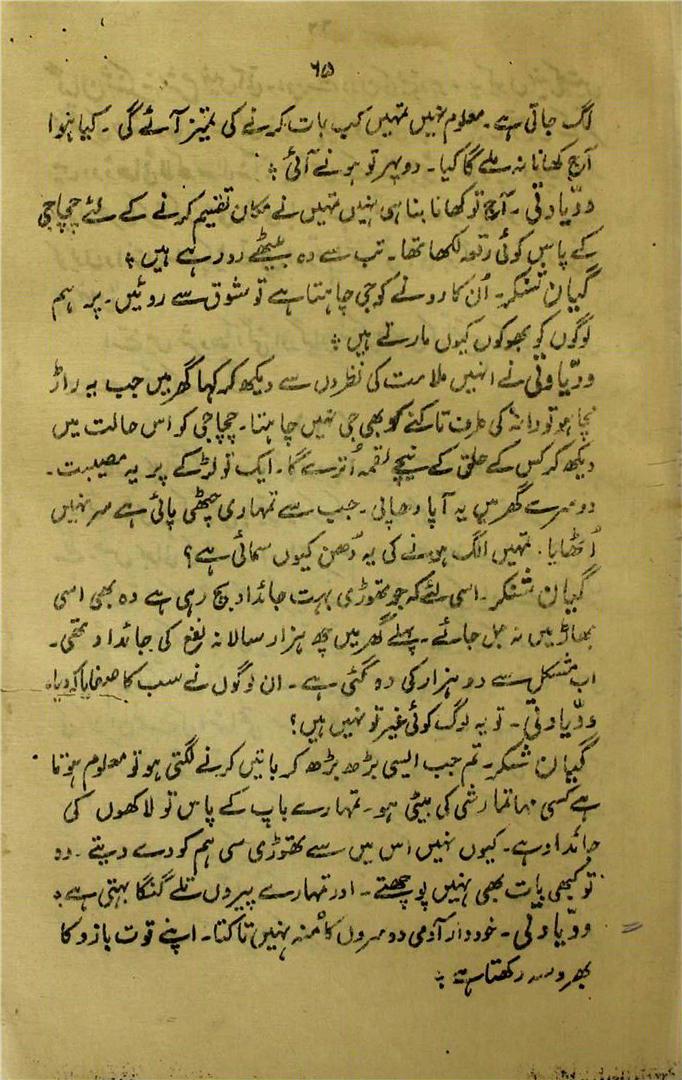 ۶۵
لگ جاتی ہے۔ معلوم نہیں تمہیں کب بات کرنے کی تمیز آئے گی۔ کیا ہوا
آج کھانا نہ ملے گا کیا۔ دوپہر تو ہونے آئی ۔:
ودّیاوتی۔ آج تو کھانا بنا ہی نہیں تمہیں نے مکان تقسیم کرنے کے لئے چچاجی
کے پاس کوئی رقعہ لکھا تھا۔ تب سے وہ بیٹھے رو رہے ہیں ۔:
گیان شنکر۔ اُن کا رونے کو جی چاہتا ہے تو شوق سے روئیں۔ پر ہم
لوگوں کو بھوکوں کیوں مارتے ہیں ۔:
ودّیاوتی نے انہیں ملامت کی نظروں سے دیکھ کر کہا گھر میں جب یہ راڑ
مچا ہو تو دانہ کی طرف تاکنے کو بھی جی نہیں چاہتا۔ چچاجی کو اس حالت میں
دیکھ کر کس کے حلق کے نیچے لقمہ اُترے گا۔ ایک تو لڑکے پر یہ مصیبت۔
دوسرے گھر میں یہ آپا دھاپی۔ جب سے تمہاری چٹھی پائی ہے سر نہیں
اُٹھایا۔ تمہیں الگ ہونے کی یہ دُھن کیوں سمائی ہے؟
گیان شنکر۔ اسی لئے کہ جو تھوڑی بہت جائداد بچ رہی ہے وہ بھی اسی
بھاڑ میں نہ جل جائے۔ پہلے گھر میں چھ ہزار سالانہ نفع کی جائداد تھی۔
اب مشکل سے دو ہزار کی رہ گئی ہے۔ ان لوگوں نے سب کا صفایا کر دیا۔
ودّیاوتی۔ تو یہ لوگ کوئی غیر تو نہیں ہیں؟
گیان شنکر۔ تم جب ایسی بڑھ بڑھ کر باتیں کرنے لگتی ہو تو معلوم ہوتا
ہے کسی مہاتما رشی کی بیٹی ہو۔ تمہارے باپ کے پاس تو لاکھوں کی
جائداد ہے۔ کیوں نہیں اس میں سے تھوڑی سی ہم کو دے دیتے۔ وہ
تو کبھی بات بھی نہیں پوچھتے۔ اور تمہارے پیروں تلے گنگا بہتی ہے ۔:
ودّیاوتی۔ خوددار آدمی دوسروں کا مُنہ نہیں تاکتا۔ اپنے قوت بازو کا
بھروسہ رکھتا ہے ۔: